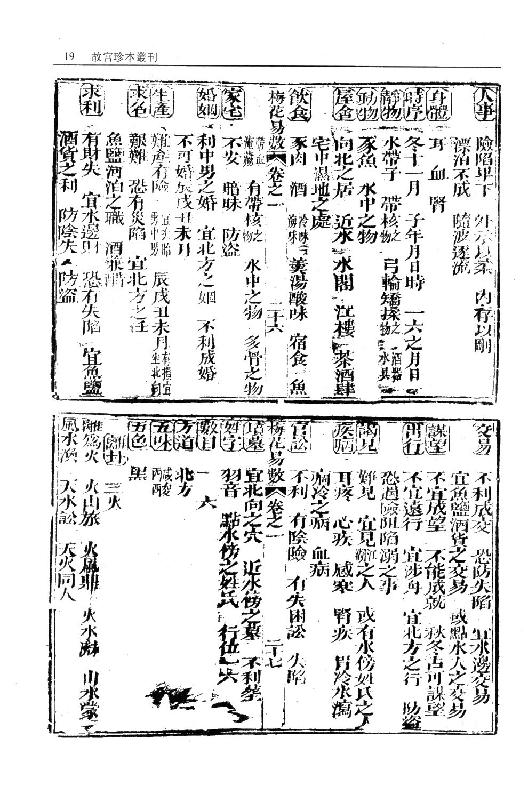 19 故宮珍本叢刊
人事 險陷卑下 外示以柔 內存以剛
漂泊不成 隨波逐流
身體 耳 血 腎
時序 冬十一月 子年月日時 一六之月日
靜物 水帶子 帶核之物 弓輪矯揉之物 酒器 水具
動物 豕魚 水中之物
屋舍 向北之居 近水 水閣 江樓 茶酒肆
宅中濕地之處
飲食 豕肉 酒 冷味 海味 羹湯 酸味 宿食 魚
梅花易數 卷之一 二十六
帶血 有帶核之物 水中之物 多骨之物
家宅 不安 暗昧 防盜
婚姻 利中男之婚 宜北方之姻 不利成婚
不可婚辰戌丑未月
生產 難產有險 辰戌丑未月
求名 艱難 恐有災陷 宜北方之任
魚鹽河泊之職 酒兼醋
求利 有財失 宜水邊財 恐有失陷 宜魚鹽
酒貨之利 防陰失 防盜
交易 不利成交 恐防失陷 宜水邊交易
宜魚鹽酒貨之交易 或點水人之交易
謀望 不宜成望 不能成就 秋冬占可謀望
出行 不宜遠行 宜涉舟 宜北方之行 防盜
恐遇險阻陷溺之事
謁見 難見 宜見江湖之人 或有水傍姓氏之人
疾病 耳疼 心疾 感寒 腎疾 胃冷水瀉
痼冷之病 血病
官訟 不利 有陰險 有失困訟 失陷
梅花易數 卷之一 二十七
墳墓 宜北向之穴 近水傍之墓 不利葬
姓字 羽音 點水傍之姓氏 行位一六
數目 一 六
方道 北方
五味 鹹 酸
五色 黑
離卦 三 火
離為火 火山旅 火風鼎 火水未濟 山水蒙
風水渙 天水訟 天火同人